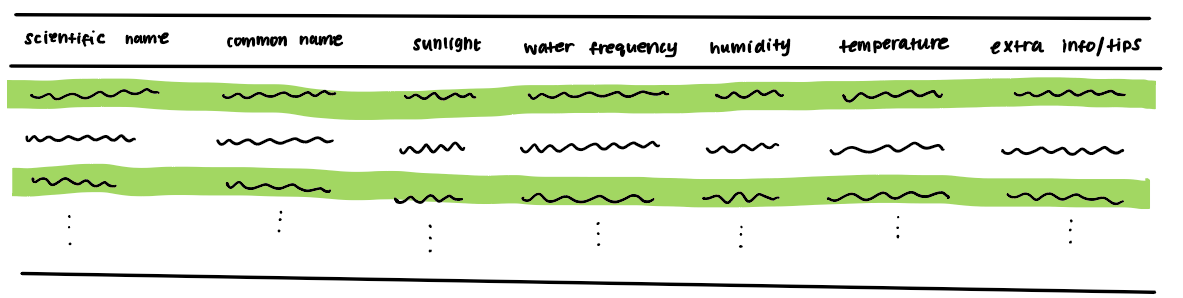 scientific name common name sunlight water frequency humidity temperature extra info/tips